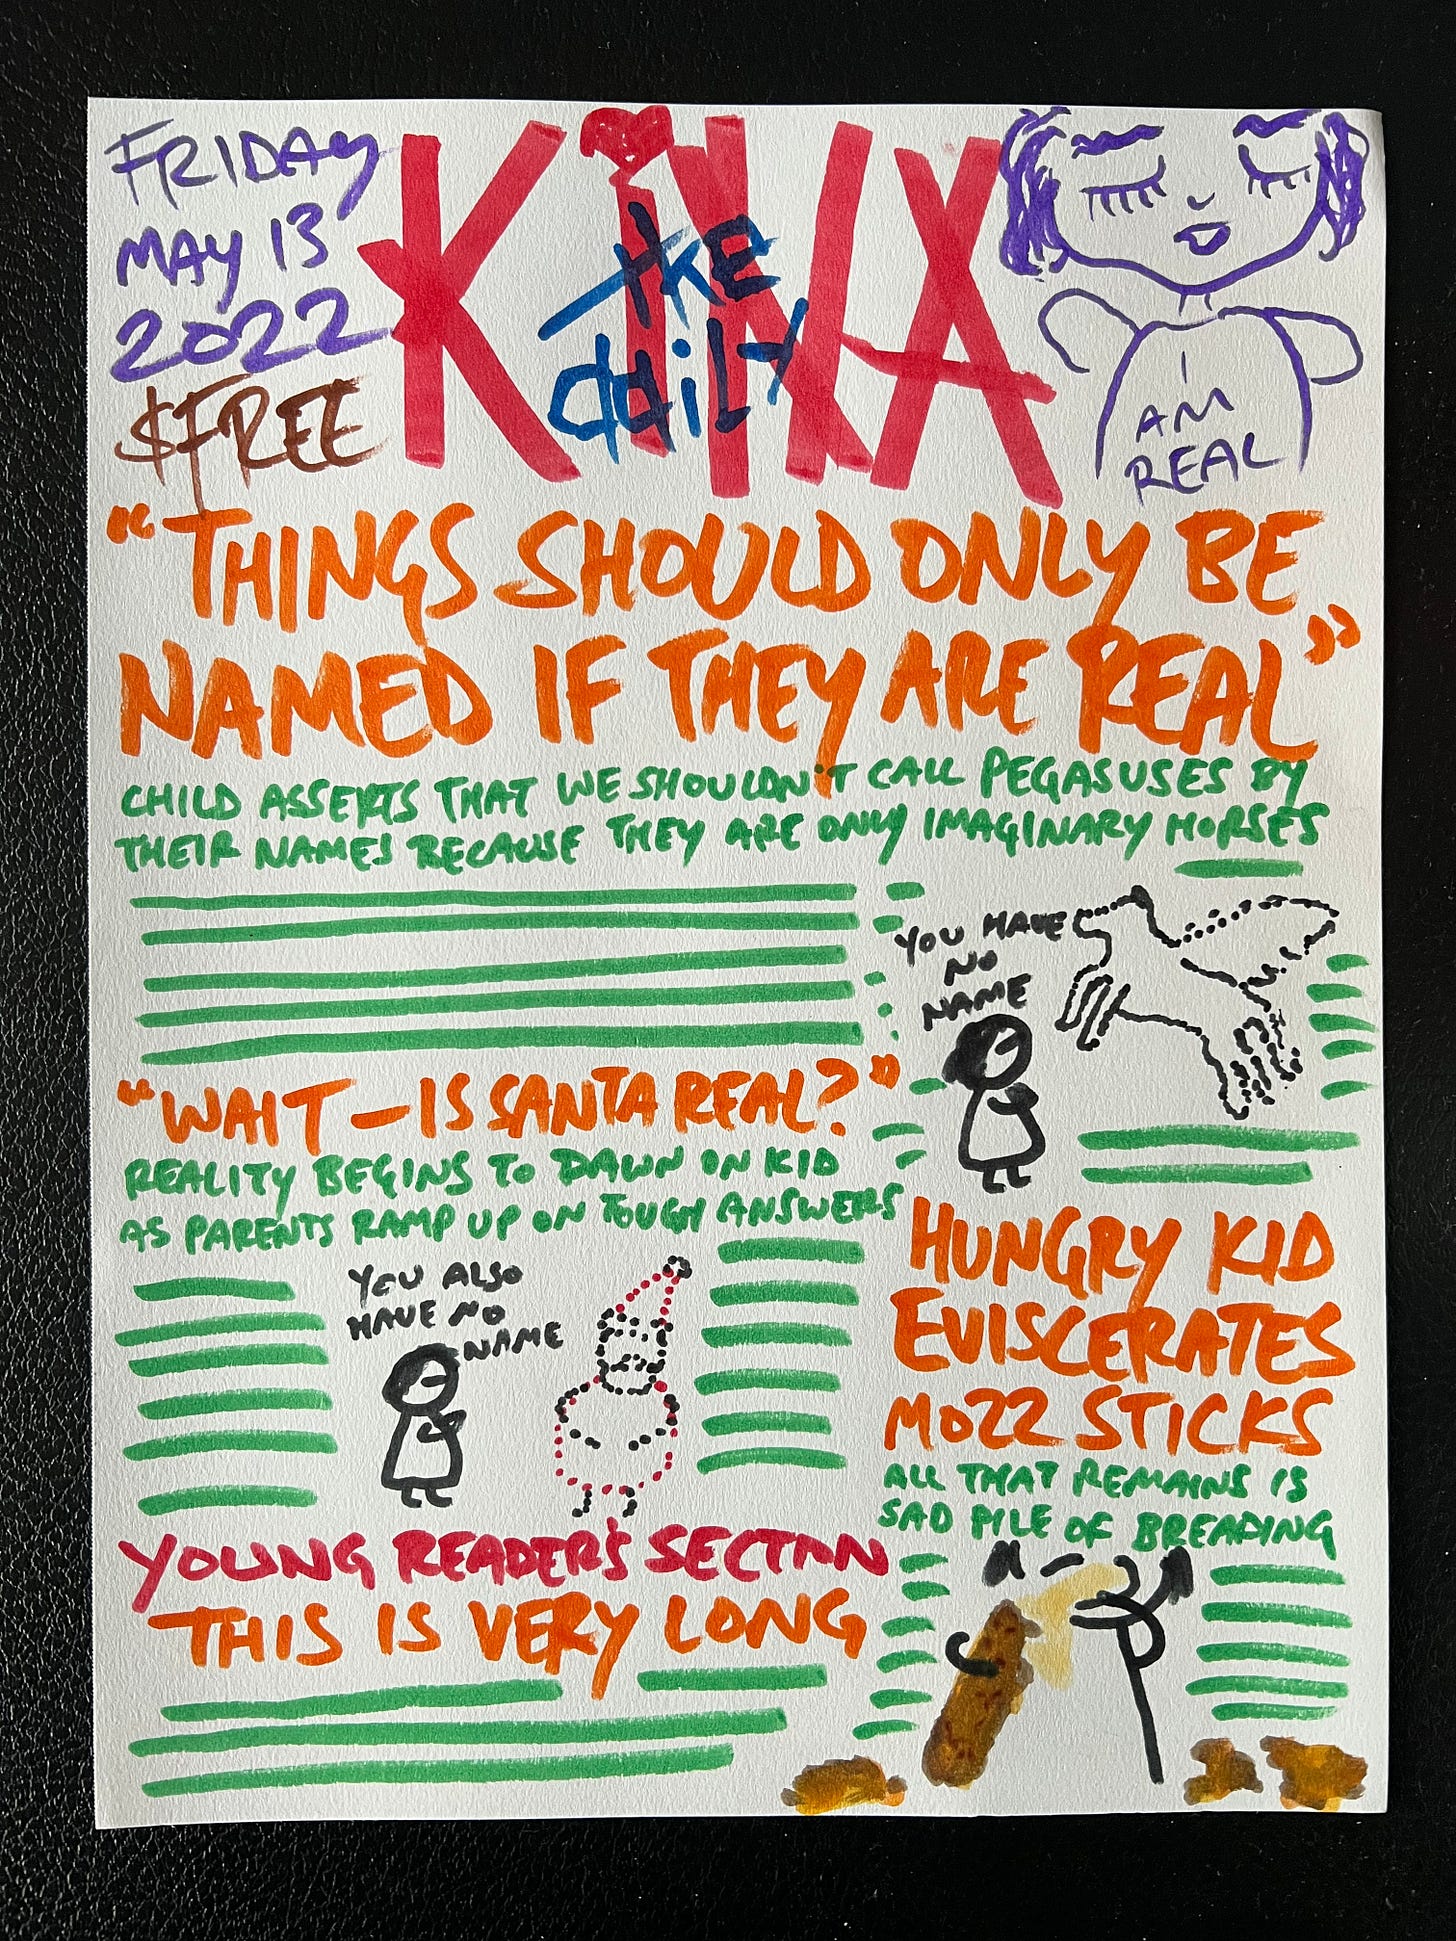 FRIDAY
MAY 13
2022
$FREE
the
daily
KiNA
I
AM
REAL
"THINGS SHOULD ONLY BE
NAMED IF THEY ARE REAL"
CHILD ASSERTS THAT WE SHOULDN'T CALL PEGASUSES BY
THEIR NAMES BECAUSE THEY ARE ONLY IMAGINARY HORSES
YOU HAVE
NO
NAME
"WAIT - IS SANTA REAL?"
REALITY BEGINS TO DAWN ON KID
AS PARENTS RAMP UP ON TOUGH ANSWERS
YOU ALSO
HAVE NO
NAME
HUNGRY KID
EVISCERATES
MOZZ STICKS
ALL THAT REMAINS IS
SAD PILE OF BREADING
YOUNG READER'S SECTION
THIS IS VERY LONG